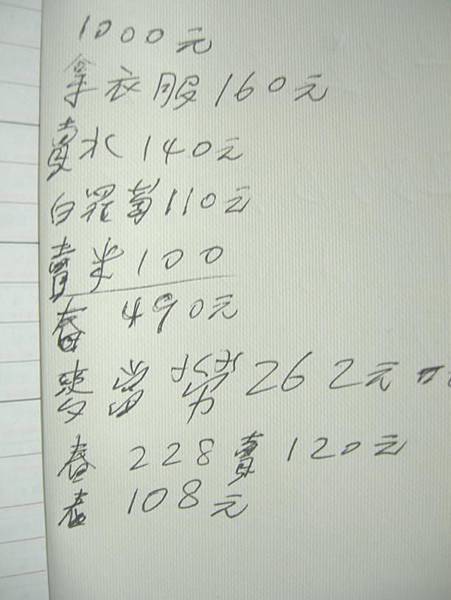 1000元
拿衣服160元
賣水140元
白蘿蔔110元
賣米100
春490元
麥當勞262元
春228賣120元
春108元